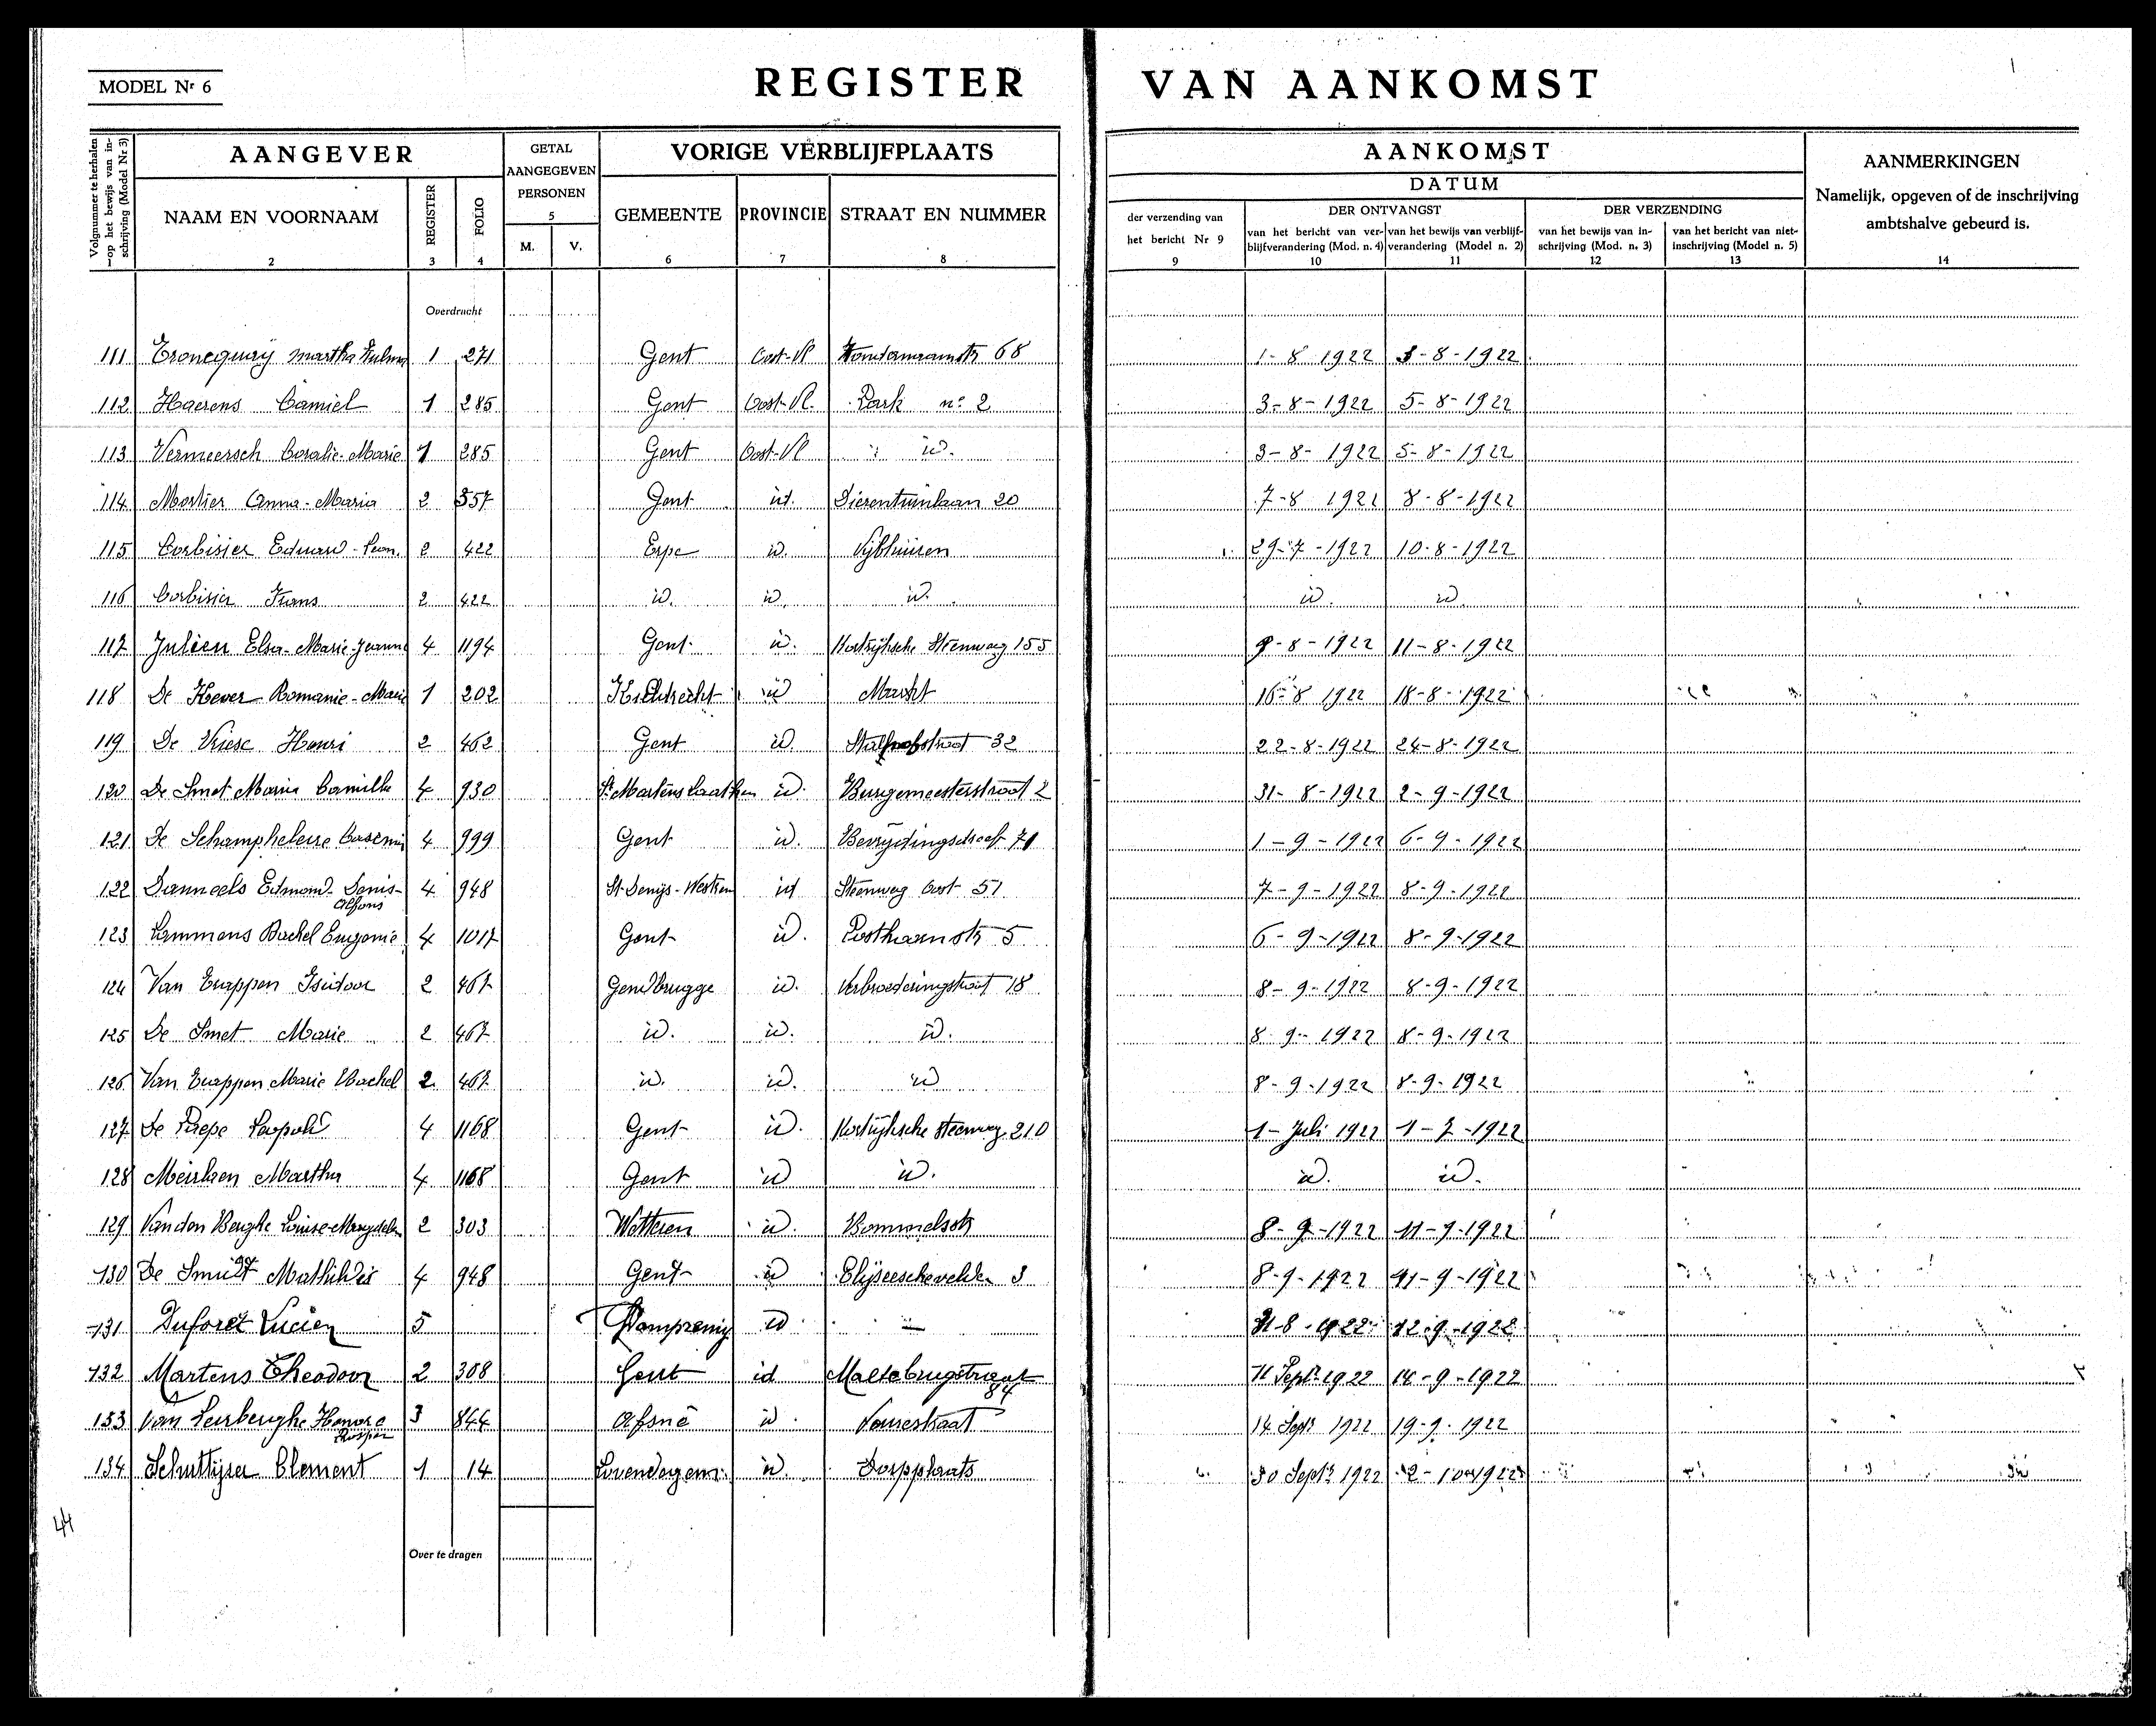 MODEL Nr 6
REGISTER VAN AANKOMST
Volgnummer te herhalen op het bewijs van inschrijving (Model Nr 3)
1
AANGEVER
NAAM EN VOORNAAM
2
REGISTER
3
FOLIO
4
GETAL
AANGEGEVEN
PERSONEN
5
M. V.
VORIGE VERBLIJFPLAATS
GEMEENTE
6
PROVINCIE
7
STRAAT EN NUMMER
8
AANKOMST
DATUM
der verzending van
het bericht Nr 9
9
DER ONTVANGST
van het bericht van ver-
blijfverandering (Mod. n. 4)
10
van het bewijs van verblijf-
verandering (Model n. 2)
11
DER VERZENDING
van het bewijs van in-
schrijving (Mod. n. 3)
12
van het bericht van niet-
inschrijving (Model n. 5)
13
AANMERKINGEN
Namelijk, opgeven of de inschrijving
ambtshalve gebeurd is.
14
Overdracht
111 Troncquay Martha 1 271 Gent Oost-Vl 68 1-8 1922 3-8-1922
112 Haerens Camiel 1 285 Gent Oost-Vl. Park n° 2 3-8-1922 5-8-1922
113 Vermeersch Coralie-Marie 1 285 Gent Oost-Vl id. 3-8-1922 5-8-1922
114 Mortier Anna-Maria 2 357 Gent id. Dierentuinlaan 20 7-8 1922 8-8-1922
115 Corbisier Eduard-Leon. 2 422 Erpe id. Vijfhuizen 29-7-1922 10-8-1922
116 Corbisier Frans 2 422 id. id. id. id. id.
117 Julien Elsa-Marie-Jeanne 4 1194 Gent id. Kortrijksche Steenweg 155 9-8-1922 11-8-1922
118 De Kever Romanie-Marie 1 202 Kieldrecht id Markt 16-8 1922 18-8-1922
119 De Vriese Henri 2 462 Gent id. Stalhofstraat 32 22-8-1922 24-8-1922
120 De Smet Maria Camilla 4 930 St Martens Laathem id. Burgemeesterstraat 2 31-8-1922 2-9-1922
121 De Schampheleire 4 999 Gent id. Bevrijdingsdreef 71 1-9-1922 6-9-1922
122 Danneels Edmond-Denis- 4 948 St-Denijs-Westrem id Steenweg Oost 51 7-9-1922 8-9-1922
Alfons
123 Lammens Rachel Eugenie 4 1017 Gent id. Posthoornstr 5 6-9-1922 8-9-1922
124 Van Trappen Isidoor 2 467 Gendbrugge id. Verbroederingstraat 18 8-9-1922 8-9-1922
125 De Smet Marie 2 467 id. id. id. 8-9-1922 8-9-1922
126 Van Trappen Marie Rachel 2 467 id. id. id 8-9-1922 8-9-1922
127 De Leopold 4 1168 Gent id. Kortrijksche Steenweg 210 1-Juli 1922 1-7-1922
128 Meirhaen Martha 4 1168 Gent id id. id. id.
129 Van den Berghe Louise-Magdalen 2 303 Wetteren id. Bommelsstr 8-9-1922 11-9-1922
130 De Smidt Mathildis 4 948 Gent id Elyseeschevelden 3 8-9-1922 11-9-1922
131 Duforet Lucien 5 Dampremy id — 31-8-1922 12-9-1922
132 Martens Theodoor 2 308 Gent id Maltebrugstraat 11 Septr 1922 14-9-1922
84
133 Van Leirberghe Honore 3 844 Afsné id. Veurestraat 14 Septr 1922 19-9-1922
Prosper
134 Schuttijser Clement 1 14 Lovendegem id. Dorpplaats 30 Septr 1922 2-10-1922
44
Over te dragen